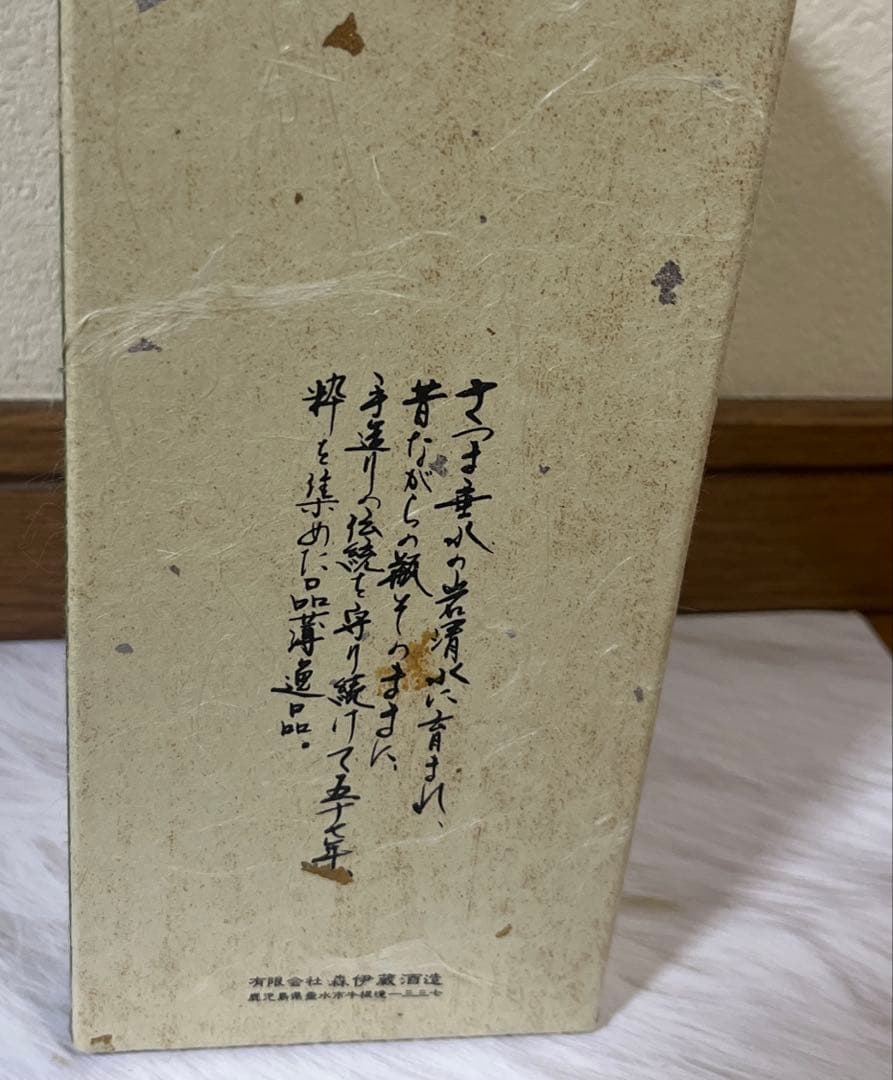 さつま垂水の岩清水に育まれ、
昔ながらの瓶そのままに、
手造りの伝統を守り続けて五十七年、
粋を集めた品薄逸品。
有限会社 森伊蔵酒造
鹿児島県垂水市牛根境一三三七